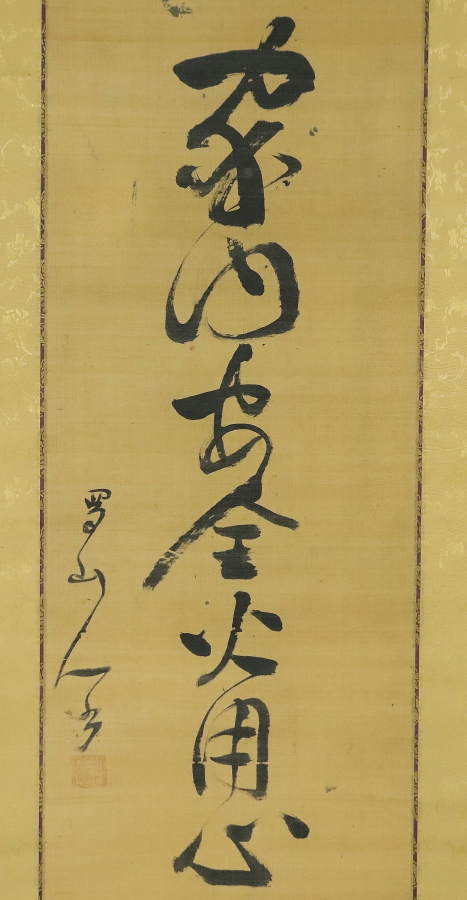 家内安全火用心
蜀山人書